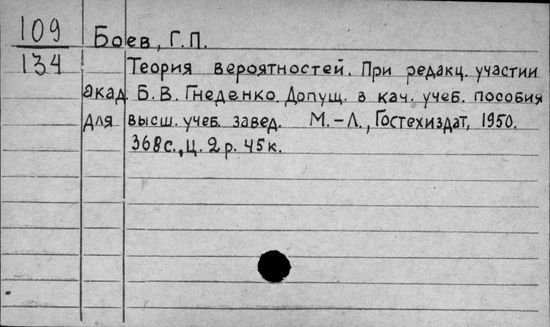 109
134
Боев, Г.П.
Теория вероятностей. При редакц. участии
акад. Б.В. Гнеденко. Допущ. в кач. учеб. пособия
для высш. учеб. завед. М.-Л., Гостехиздат, 1950.
368с., ц. 2р. 45к.